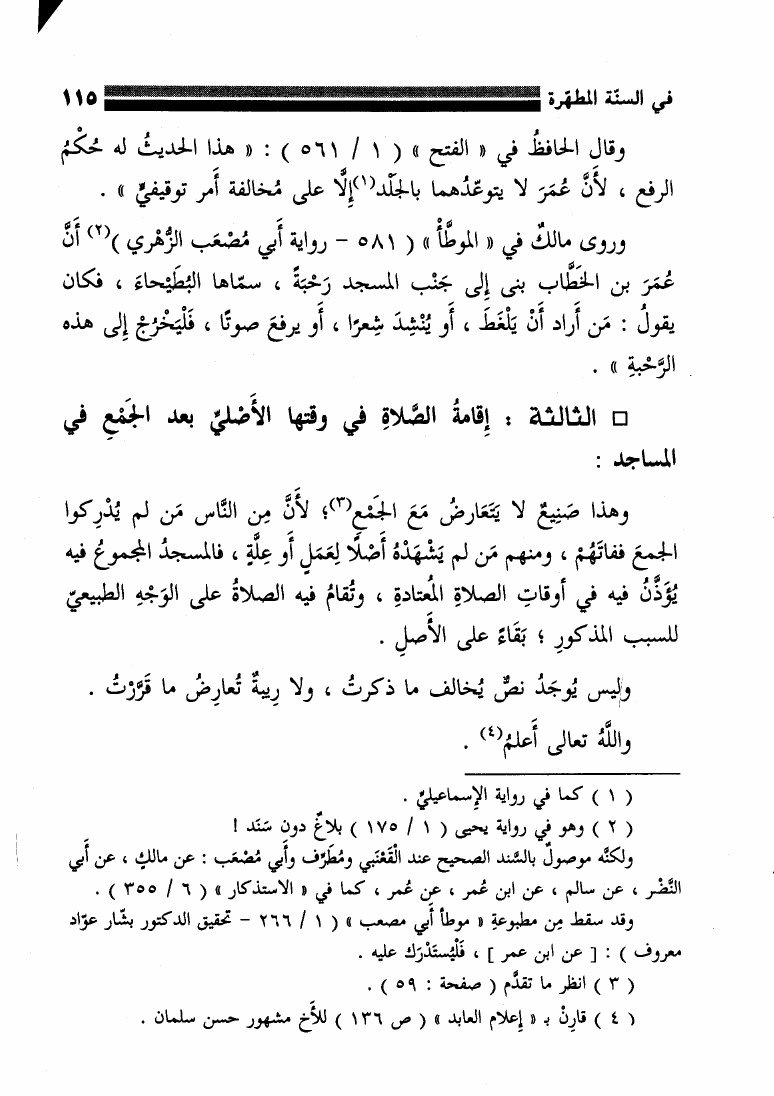 في السنّة المطهّرة ١١٥
وقال الحافظُ في « الفتح » ( ١ / ٥٦١ ) : « هذا الحديثُ له حُكْمُ
الرفع ، لأَنَّ عُمَرَ لا يتوعّدُهما بالجَلْد(١)إِلَّا على مُخالفة أَمر توقيفيٍّ » .
وروى مالكٌ في « الموطَّأْ » ( ٥٨١ – رواية أَبي مُصْعَب الزُّهْري )(٢) أَنَّ
عُمَرَ بن الخَطَّاب بنى إِلى جَنْب المسجد رَحْبَةً ، سمّاها البُطَيْحاءَ ، فكان
يقولُ : مَن أَراد أَنْ يَلْغَطَ ، أَو يُنْشِدَ شِعرًا ، أَو يرفعَ صوتًا ، فَلْيَخْرُجْ إِلى هذه
الرَّحْبةِ » .
□ الثالثة : إِقامةُ الصَّلاةِ في وقتها الأَصْليِّ بعد الجَمْعِ في
المساجد :
وهذا صَنِيعٌ لا يَتَعَارضُ مَعَ الجَمْعِ(٣)؛ لأَنَّ مِن النَّاس مَن لم يُدْرِكوا
الجمعَ ففاتَهُمْ ، ومنهم مَن لم يَشْهَدْهُ أَصْلًا لِعَمَلٍ أَو عِلَّةٍ ، فالمسجدُ المجموعُ فيه
يُؤَذَّنُ فيه في أَوقاتِ الصلاةِ المُعتادةِ ، وتُقامُ فيه الصلاةُ على الوَجْهِ الطبيعيّ
للسبب المذكورِ ؛ بَقَاءً على الأَصلِ .
وليس يُوجَدُ نصٌّ يُخالف ما ذكرتُ ، ولا رِيبةٌ تُعارِضُ ما قَرَّرْتُ .
واللَّهُ تعالى أَعلمُ(٤) .
( ١ ) كما في رواية الإِسماعيليِّ .
( ٢ ) وهو في رواية يحيى ( ١ / ١٧٥ ) بلاغٌ دون سَنَد !
ولكنَّه موصولٌ بالسَّند الصحيح عند القَعْنَبي ومُطَرِّف وأَبي مُصْعَب : عن مالكٍ ، عن أَبي
النَّضْر ، عن سالم ، عن ابن عُمر ، عن عُمر ، كما في « الاستذكار » ( ٦ / ٣٥٥ ) .
وقد سقط مِن مطبوعةِ « موطأ أَبي مصعب » ( ١ / ٢٦٦ – تحقيق الدكتور بشّار عوّاد
معروف ) : [ عن ابن عمر ] ، فَلْيُستَدْرَك عليه .
( ٣ ) انظر ما تقدَّم ( صفحة : ٥٩ ) .
( ٤ ) قارِنْ بـ « إِعلام العابد » ( ص ١٣٦ ) للأَخ مشهور حسن سلمان .